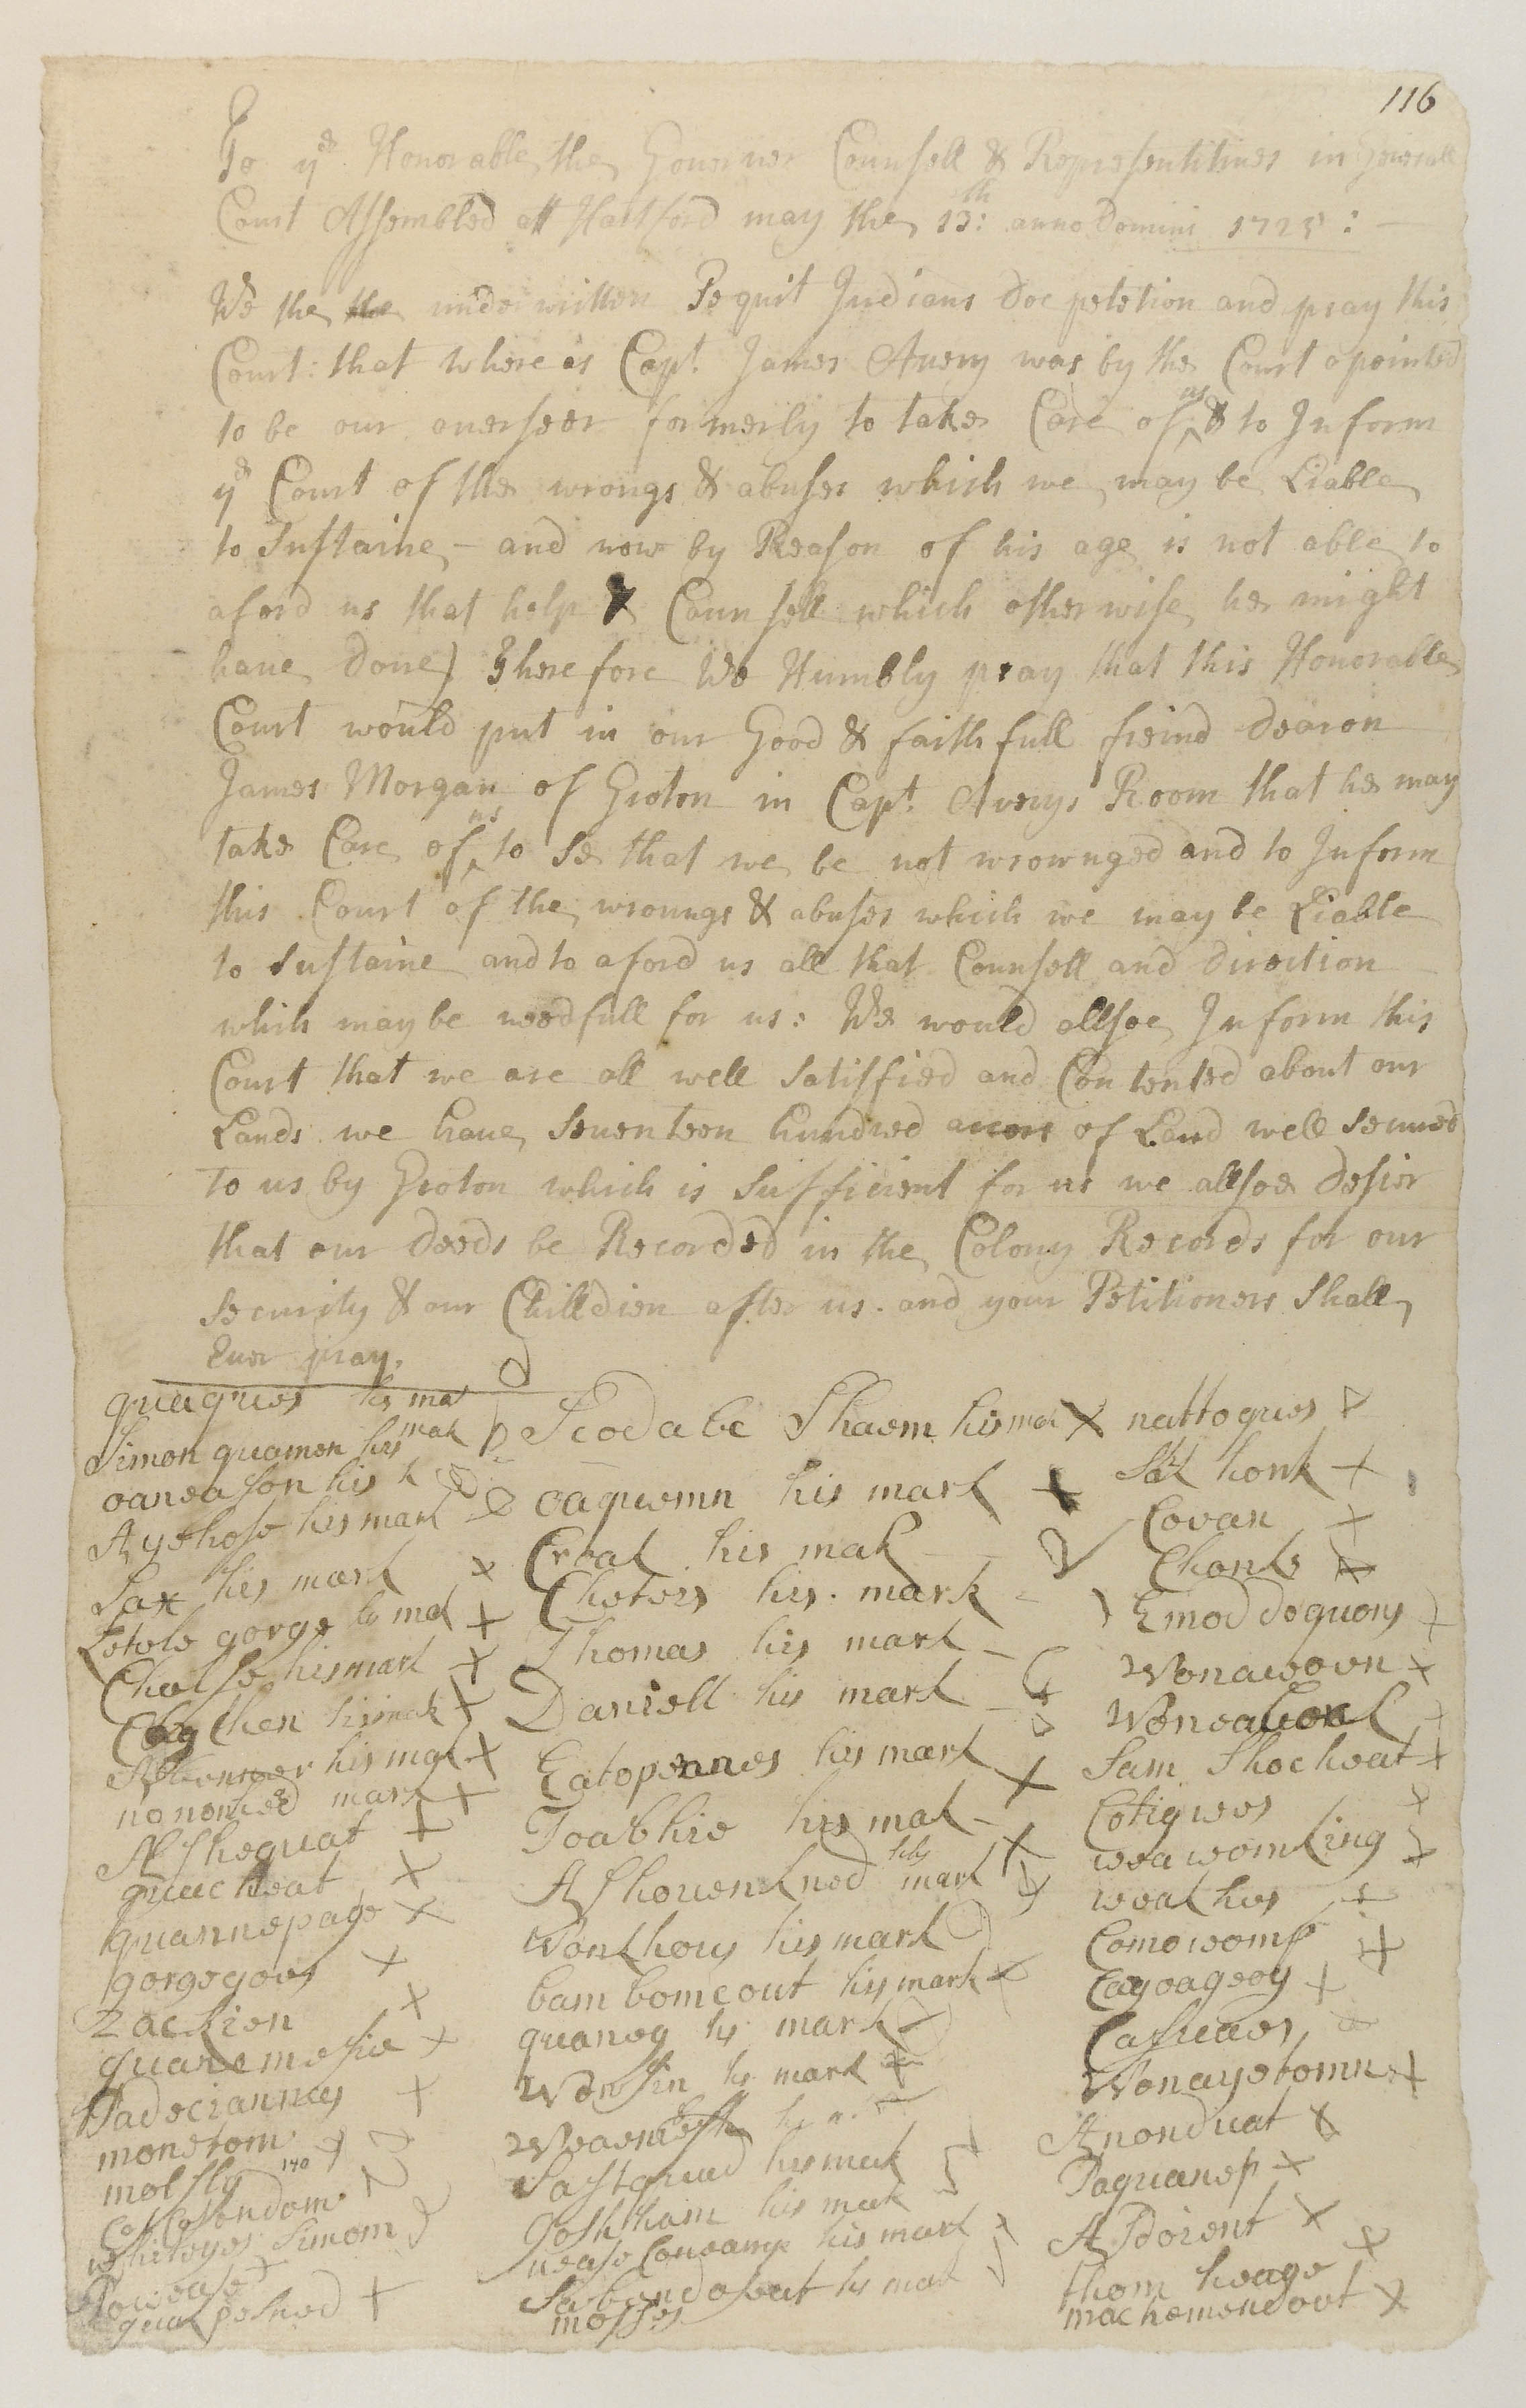 116
To ye Honorable the Gouerner Counsell & Representitiues in Generall
Court Assembled att Hartford may the 13th: anno Domini 1725:
We the the underwritten Pequit Indians doe petetion and pray this
Court: that where as Capt. James Auery was by the Court apointed
to be our ouerseer formerly to take Care of us & to Inform
ye Court of the wrongs & abuses which we may be Liable
to Sustaine - and now by Reason of his age is not able to
aford us that help & Counsell which otherwise he might
haue done) Therefore We Humbly pray that this Honorable
Court would put in our Good & faithfull freind deacon
James Morgan of Groton in Capt. Averys Room that he may
take Care of us to Se that we be not wrownged and to Inform
this Court of the wroungs & abuses which we may be Liable
to sustaine and to aford us all that Counsell and direction
which may be needfull for us: We would allsoe Inform this
Court that we are all well Satisfied and Contented about our
Lands we haue Seuenteen hundred acers of Land well Secured
to us by Groton which is Sufficient for us we allsoe desier
that our deeds be Recorded in the Colony Records for our
Security & our Chilldren after us. and your Petitioners Shall
Euer pray.
quaques his mak
Simon quamen his mak
oaneason his
Ayehose his mark
Sax his mark
Letele gorge his mak
Chalse his mark
his mak
his mak
nonomked mark
Ashequat
quacheat
quannepage
gorgegoes
Zackien
quanemesue
Padeciannas
monetom
molsly
140
whiteyes Simon
Powease
Scodabe Shaem his mak
oaquemn his mark
his mak
Cheters his mark
Thomas his mark
Daniell his mark
Eatopennes his mark
Toabhie his mak
Ashouenkned his mark
Wonkhous his mark
bambomeout his mark
quaneg his mark
Wensin his mark
Sastquad his mak
Goshtham his mak
his mark
his mak
mosses
nattoques
Sak honk
Covan
Chonks
Emoddequons
Wonaweoen
Sam Shocheat
Cotigwes
weawomking
weakhes
Comowomp
Cayoageoy
Casuades
Wonayetomn
Anonduat
Paquanep
APdoient
thom heage
machemendoot